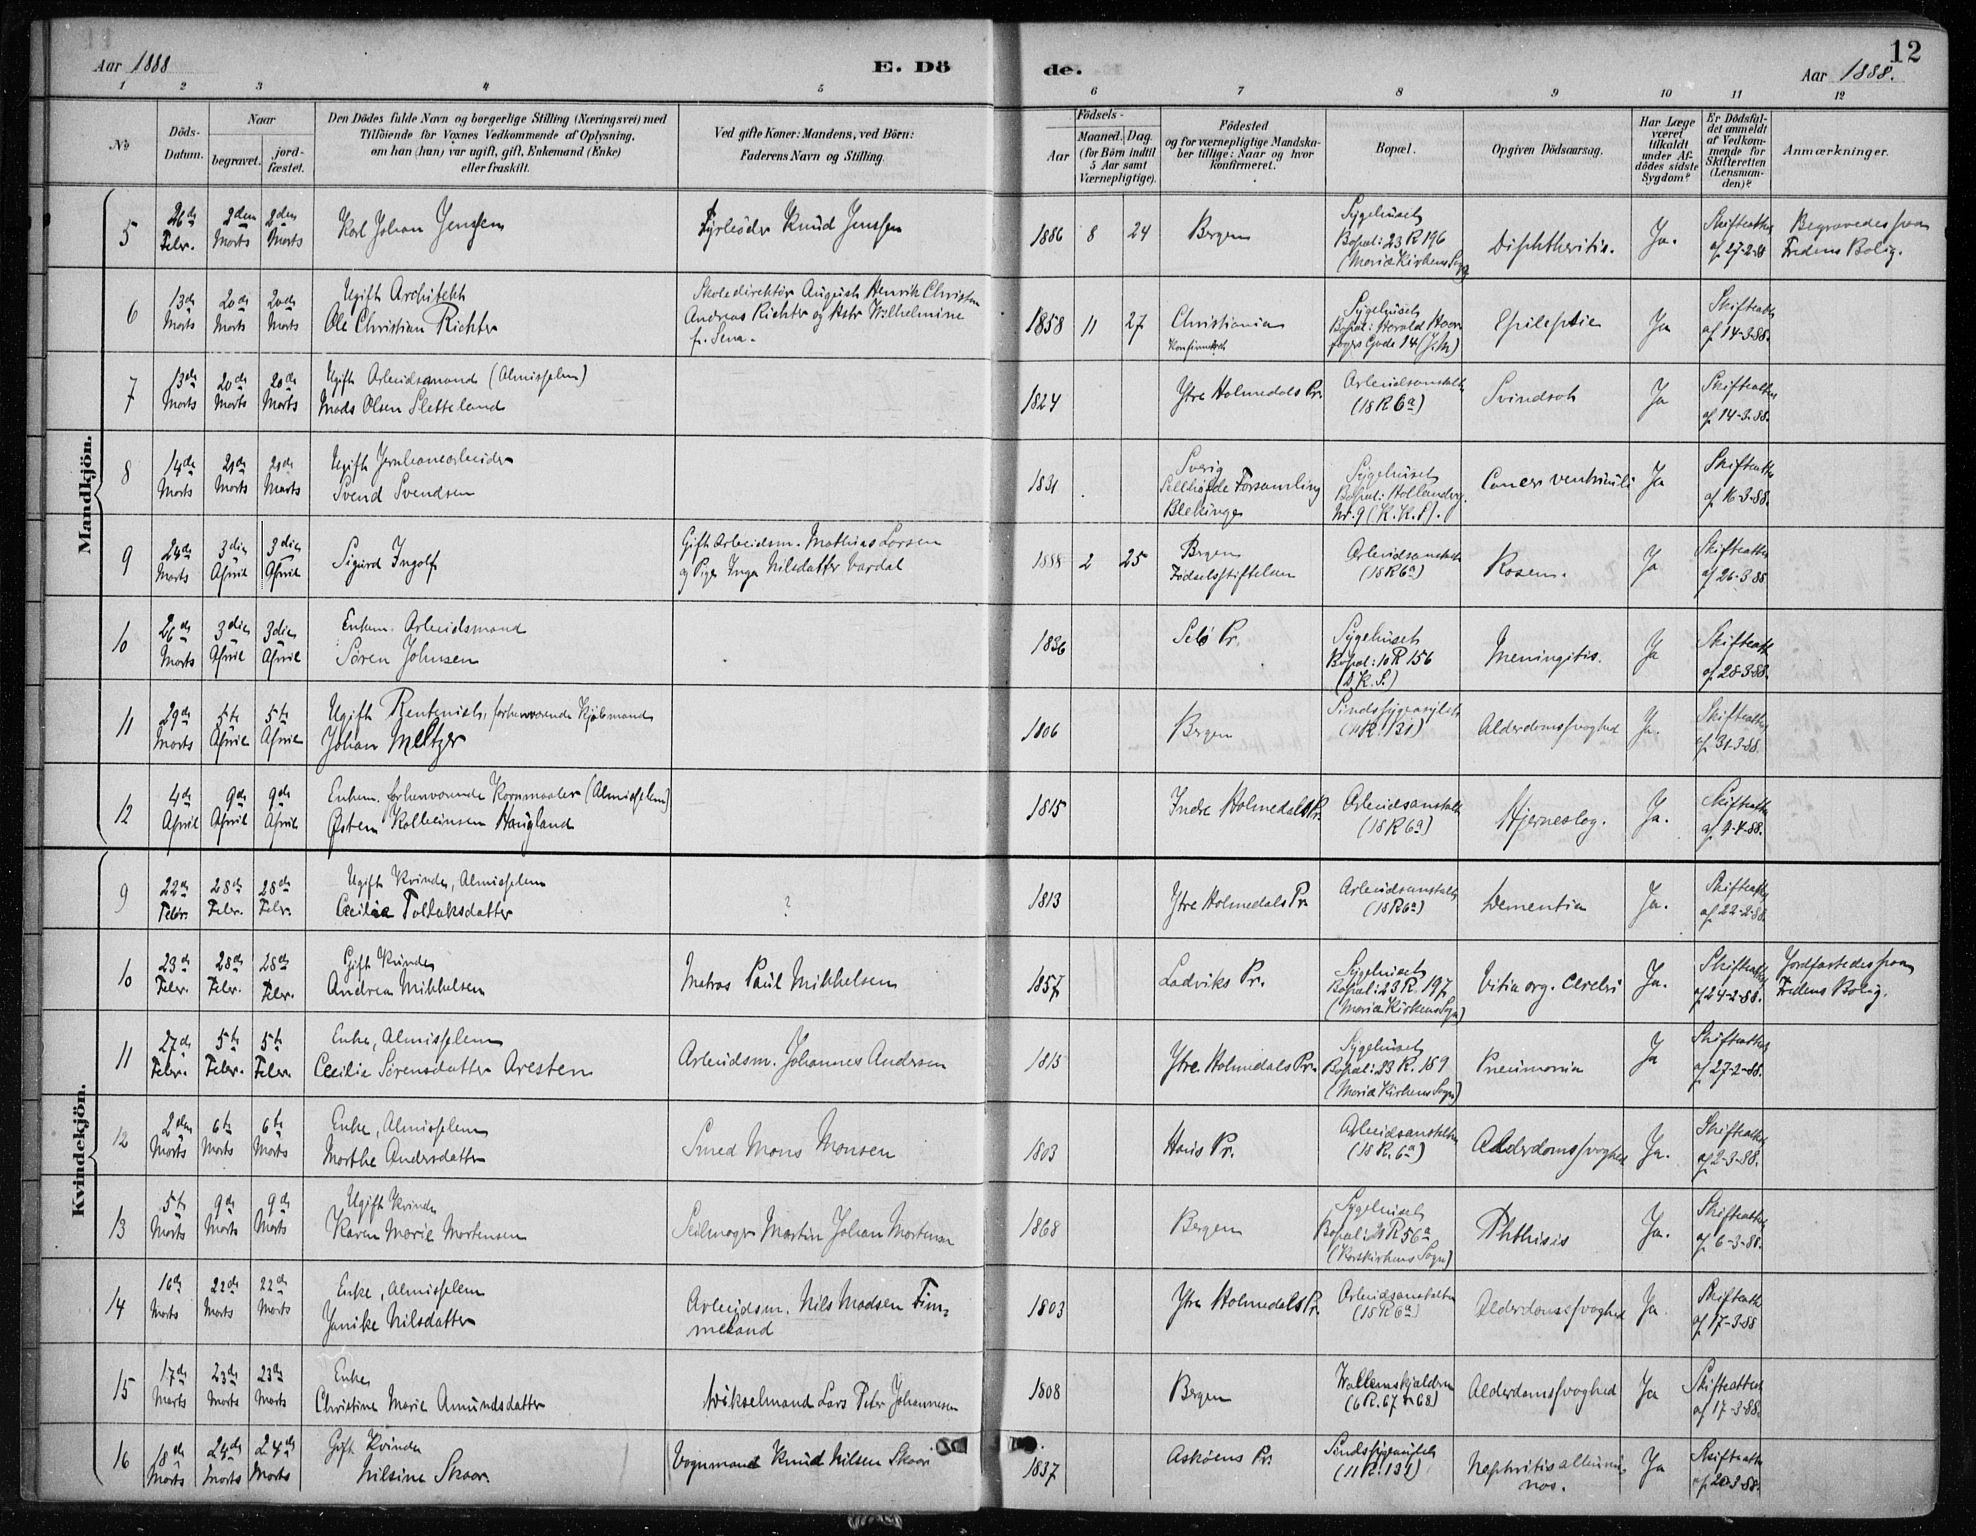 Aar 1888
E. Dö
de.
12
Aar 1888.
1 2 3 4 5 6 7 8 9 10 11 12
No
Döds-Datum.
Naar
begravet.
jord-fæstet.
Den Dödes fulde Navn og borgerlige Stilling (Næringsvei) med
Tilföiende for Voxnes Vedkommende af Oplysning,
om han (hun) var ugift, gift, Enkemand (Enke)
eller fraskilt.
Ved gifte Koner: Mandens, ved Börn:
Faderens Navn og Stilling.
Födsels-
Aar
Maaned. Dag.
(for Börn indtil
5 Aar samt
Værnepligtige).
Födested
og for værnepligtige Mandska-
ber tillige: Naar og hvor
konfirmeret.
Bopæl.
Opgiven Dödsaarsag.
Har Læge
været
tilkaldt
under Af-
dödes sidste
Sygdom?
Er Dödsfal-
det anmeldt
af Vedkom-
mende for
Skifteretten
(Lensman-
den)?
Anmærkninger.
Mandkjön.
5 26de Febr. 2den Marts 2den Marts
Karl Johan Jenssen
Fyrbøder Knud Jenssen
1886 8 24 Bergen
Sygehuset
Bopæl: 23 R 196
(Mariæ Kirkens Sogn)
Diphtheritis. Ja. Skifteattest
af 27-2-88
Begravedes fra
Fredens Bolig.
6 13de Marts 20de Marts 20de Marts
Ugift Architekt
Ole Christian Richter
Skoledirektör August Henrik Christen
Andreas Richter og Wilhelmine
f. Sena.
1858 11 27 Christiania
Konfirmeret
Sygehuset
Bopæl: Harald Haar-
fagers Gade 14
Epilepsie Ja Skifteattest
af 14-3-88.
7 13de Marts 20de Marts 20de Marts
Ugift Arbeidsmand (Almisselem)
Mads Olsen Sletteland
1824 Ytre Holmedals Pr.
Arbeidsanstalten
(18 R 6a)
Svindsot Ja Skifteattest
af 14-3-88.
8 14de Marts 21de Marts 21de Marts
Ugift Jernbanearbeider
Svend Svendsen
1831 Sverig
Forsamling
Blekinge
Sygehuset
Bopæl: Hollenderg.
Nr. 9 (K. K. S).
Cancer ventriculi Ja Skifteattest
af 16-3-88.
9 24de Marts 3die April 3die April
Sigurd Ingolf
Gift Arbeidsm. Mathias Larsen
og Pige Inga Nilsdatter Vardal
1888 2 25 Bergen
Födselsstiftelsen
Arbeidsanstalten
(18 R 6a)
Rosen. Ja Skifteattest
af 26-3-88
10 26de Marts 3die April 3die April
Enkem. Arbeidsmand
Sören Johnsen
1836 Selö Pr.
Sygehuset
Bopæl: 10 R 156
(D. K. S.)
Meningitis. Ja Skifteattest
af 28-3-88.
11 29de Marts 5te April 5te April
Ugift Rentenist, forhenværende Kjöbmand
Johan Meltzer
1806 Bergen
Sindssygeasylet
(11 R. 131)
Alderdomssvaghed Ja. Skifteattest
af 31-3-88.
12 4de April 9de April 9de April
Enkem. forhenværende Kornmaaler (Almisselem)
Østen Kolbeinsen Haugland
1815 Indre Holmedals Pr.
Arbeidsanstalten
(18 R 6a)
Hjerneslag. Ja. Skifteattest
af 9-4-88.
Kvindekjön.
9 22de Febr. 28de Febr. 28de Febr.
Ugift Kvinde, Almisselem
Cecilie Tollaksdatter
?
1813 Ytre Holmedals Pr.
Arbeidsanstalten
(18 R 6a)
Dementia Ja. Skifteattest
af 22-2-88.
10 23de Febr. 28de Febr. 28de Febr.
Gift Kvinde
Andrea Mikkelsen
Matros Paul Mikkelsen
1857 Ladviks Pr.
Sygehuset
Bopæl: 23 R. 197
(Mariæ Kirkens Sogn)
Vitia org. cerebri Ja. Skifteattest
af 24-2-88.
Jordfæstedes fra
Fredens Bolig.
11 27de Febr. 5te Febr. 5te Febr.
Enke, Almisselem
Cecilie Sörensdatter Aresten
Arbeidsm. Johannes Andersen
1815 Ytre Holmedals Pr.
Sygehuset
Bopæl: 23 R. 159
(Mariæ Kirkens Sogn)
Pneumonia Ja Skifteattest
af 27-2-88.
12 2den Marts 6te Marts 6te Marts
Enke, Almisselem
Marthe Andersdatter
Smed Mons Monsen
1803 Haus Pr.
Arbeidsanstalten
(18 R. 6a)
Alderdomssvaghed Ja. Skifteattest
af 2-3-88.
13 5te Marts 9de Marts 9de Marts
Ugift Kvinde
Karen Marie Mortensen
Seilmager Martin Johan Mortensen
1868 Bergen
Sygehuset
Bopæl: 21 R 56a
(Korskirkens Sogn)
Phthisis Ja. Skifteattest
af 6-3-88.
14 16de Marts 22de Marts 22de Marts
Enke, Almisselem
Janike Nilsdatter
Arbeidsm. Nils Madsen Fim-
meland
1803 Ytre Holmedals Pr.
Arbeidsanstalten
(18 R 6a)
Alderdomssvaghed Ja. Skifteattest
af 17-3-88
15 17de Marts 23de Marts 23de Marts
Enke
Christine Marie Amundsdatter
Vikselmand Lars Peter Johannesen
1808 Bergen
(6 R. 67 & 68)
Alderdomssvaghed Ja Skifteattest
af 17-3-88.
16 18de Marts 24de Marts 24de Marts
Gift Kvinde
Nilsine Skaar
Vognmand Knud Nilsen Skaar
1837 Askøens Pr.
Sindssygeasylet
(11 R. 131)
Nephritis albumi-
nos. Ja Skifteattest
af 20-3-88.